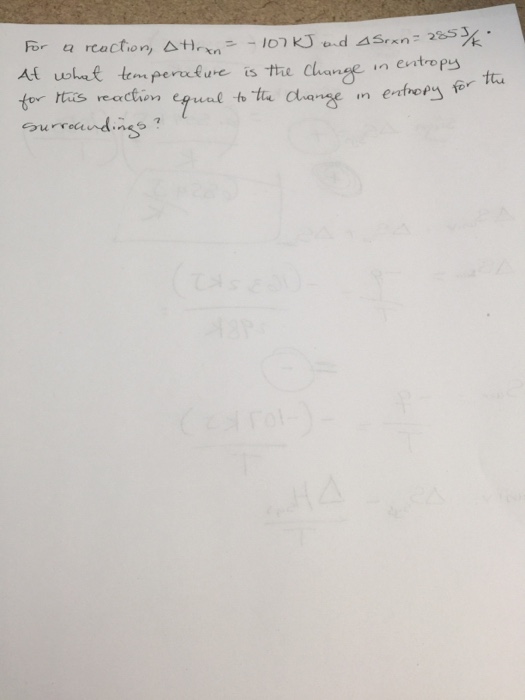 For a reaction, ΔHrxn = -107 kJ and ΔSrxn = 285 J/K.
At what temperature is the change in entropy
for this reaction equal to the change in entropy for the
surroundings?